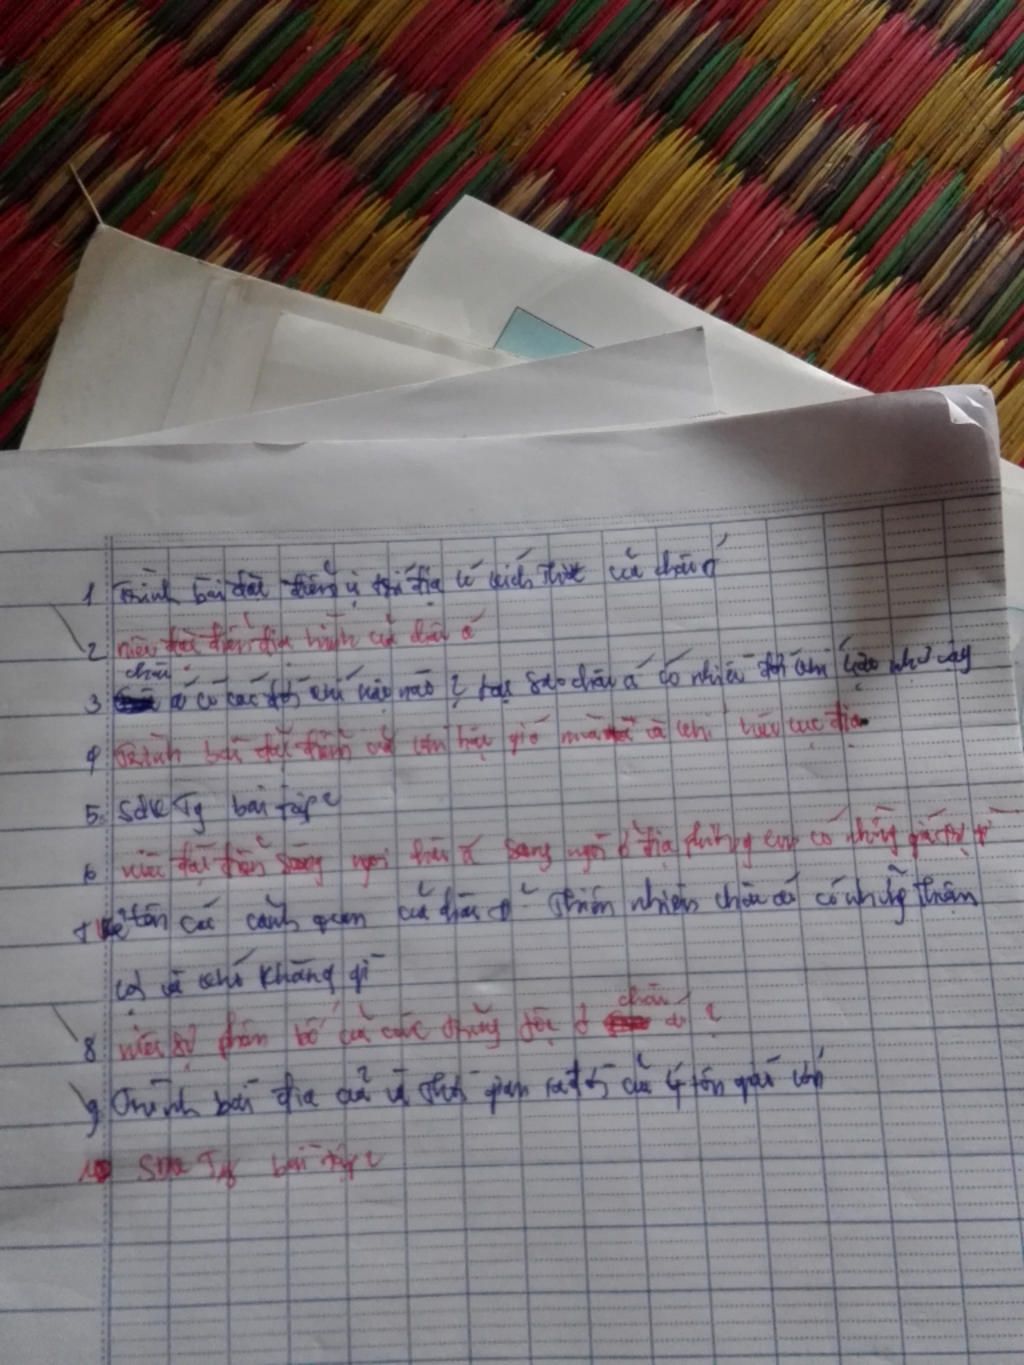 1 Trình bài đặc điểm vị trí địa lí kích thước của châu á
2 nêu đặc điểm địa hình của châu á
3 châu á có các đới khí hậu nào ? tại sao châu á có nhiều đới khí hậu như vậy
4 Trình bài đặc điểm của khí hậu gió mùa và khí hậu lục địa
5. SGK Tg bài tập 2
6 nêu đặc điểm sông ngòi châu á sông ngòi ở địa phương em có những giá trị gì
7 kể tên các cảnh quan của châu á thiên nhiên châu á có những thuận
lợi và khó khăng gì
8 nêu sự phân bố của các chủng tộc ở châu á ?
9 Trình bài địa và thời gian ra đời của 4 tôn giáo lớn
10 SGK Tg bài tập 2